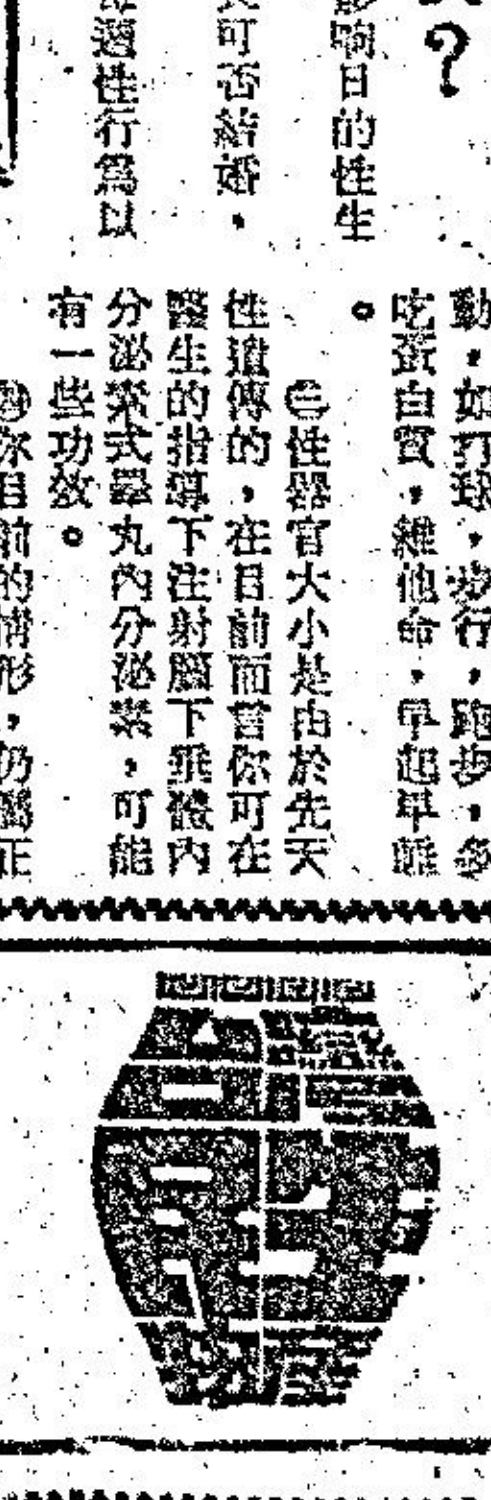 ？
影响日的性生
可否結婚，
過性行為以
動，如打球，步行，跑步，多
吃蛋白質，維他命，早起早睡
。
㊂性器官大小是由於先天
性遺傳的，在目前而言你可在
醫生的指導下注射腦下垂體內
分泌素或睪丸內分泌素，可能
有一些功效。
你目前的情形，仍屬正